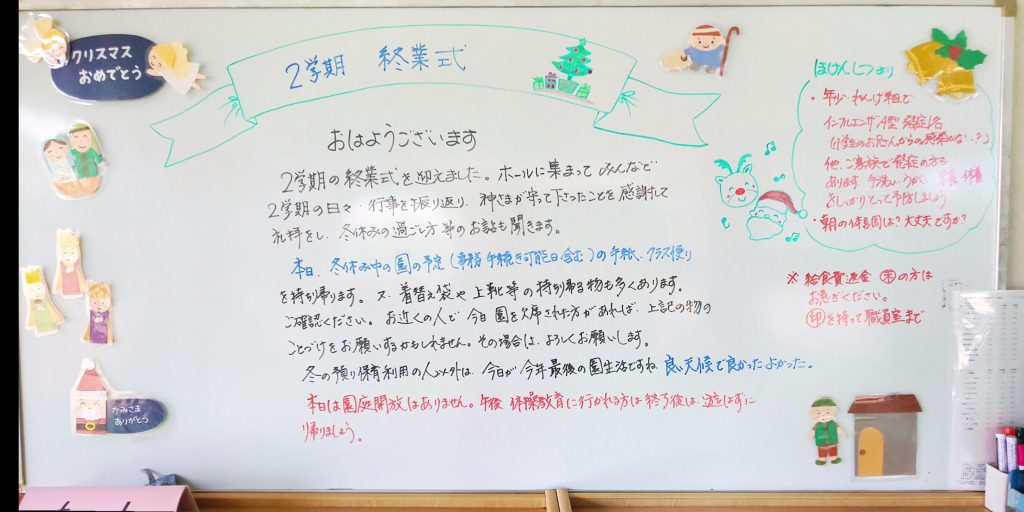 クリスマス
おめでとう
2学期 終業式
おはようございます
2学期の終業式を迎えました。ホールに集まって みんなで
2学期の日々・行事を振り返り、神さまが守って下さったことを感謝して
礼拝をし、冬休みの過ごし方等のお話も聞きます。
本日、冬休み中の園の予定(事務手続き可能日含む)の手紙、クラス便り
を持ち帰ります。又、着替え袋や上靴等の持ち帰る物も多くあります。
ご確認ください。お近くの人で 今日 園を欠席された方があれば、上記の物の
ことづけをお願いするかもしれません。その場合は、よろしくお願いします。
冬の預り保育利用の人以外は、今日が今年最後の園生活ですね 良い天候で良かったよかった。
本日は園庭開放はありません。午後 体操教育に行かれる方は 終了後は、遊ばずに
帰りましょう。
かみさま
ありがとう
ほけんしつより
・年少・れんげ組で
インフルエンザA型 発症1名
(小学生のお兄さんからの感染かな…?)
他、ご家族で発症の方も
あります。手洗い、うがい、
をしっかりとって予防しましょう
・朝の体調は?大丈夫ですか?
※ 給食費返金 未の方は
お急ぎください。
印を持って職員室まで